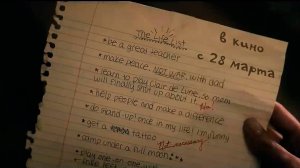 The Life List
в кино
с 28 марта
• be a great teacher
• make peace, NOT WAR with dad
• learn to play Clair de Lune so mom
will finally shut up about it
• help people and make a difference
• do stand-up! once in my life! I'm funny
• get a tattoo
Not necessary
• camp under a full moon
• play one on one with